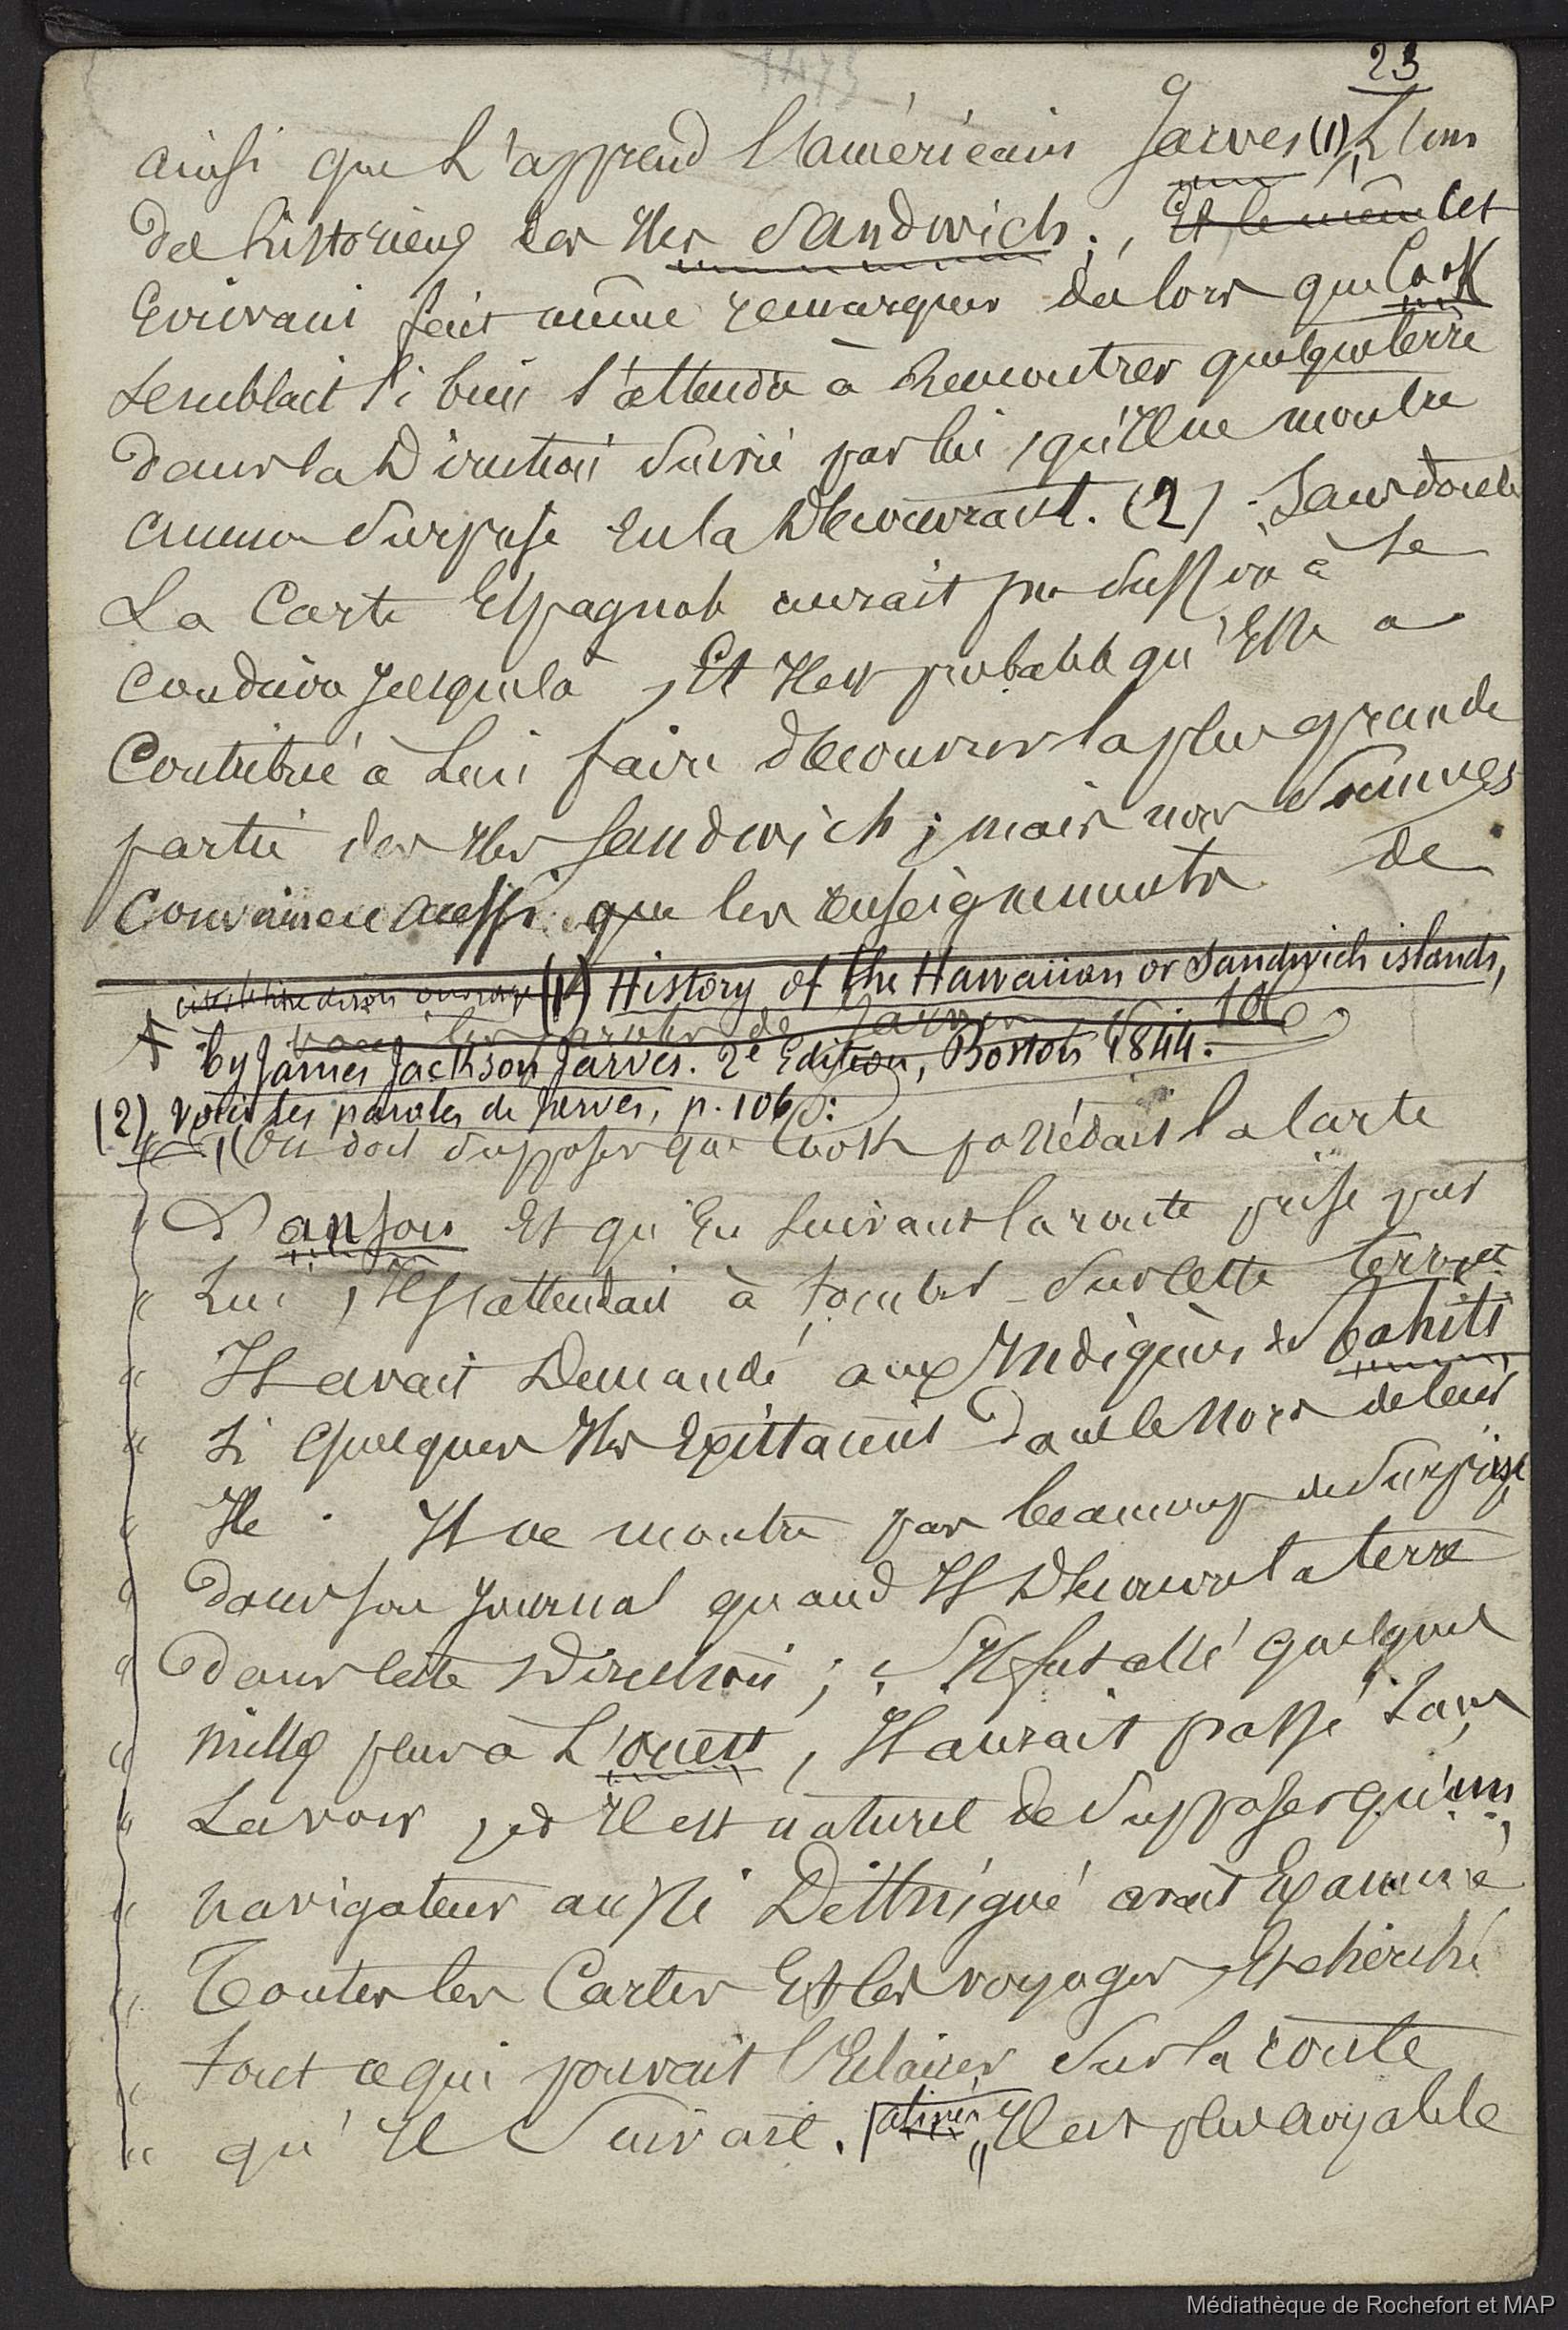 23
1473
ainsi que l'apprend l'américain Jarves (1), l'un
des historiens des Iles Sandwich ; Et le même Cet
Ecrivain fait même remarquer dès lors que Cook
semblait si bien s'attendre à rencontrer quelque terre
dans la Direction suivie par lui, qu'Il ne montre
aucune surprise En la Découvrant. (2) Sans doute
La Carte Espagnole aurait pu suffire à le
conduire jusque là, Et Il est probable qu'Elle a
Contribué à Lui faire découvrir la plus grande
partie des Iles Sandwich ; mais nous sommes
Convaincu aussi que les renseignements de
(1) History of the Hawaiian or Sandwich islands,
by James Jackson Jarves. 2e Edition, Boston 1844.
voici les paroles de Jarves 106
(2) Voici les paroles de Jarves, p. 106 :
"On doit supposer que Cook possédait la Carte
d'anson Et qu'En suivant la route prise par
" Lui, Il s'attendait à tomber sur cette terre et
" Il avait Demandé aux Indigènes de Tahiti
" si quelques Iles Existaient dans le Nord de leur
" Ile. Il ne montre pas beaucoup de surprise
" dans son Journal quand Il Découvre la terre
" dans cette Direction ; S'Il fut allé quelques
" milles plus à L'ouest, Il aurait passé sans
" La voir, et Il est naturel de supposer qu'un
" navigateur aussi Distingué avait Examiné
" Toutes les Cartes Et les voyages, Et cherché
" tout ce qui pouvait l'Eclairer sur la route
" qu'Il suivait. "Il est plus croyable
Médiathèque de Rochefort et MAP